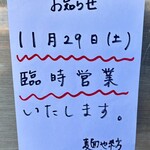 お知らせ
11月29日(土)
臨時営業
いたします。